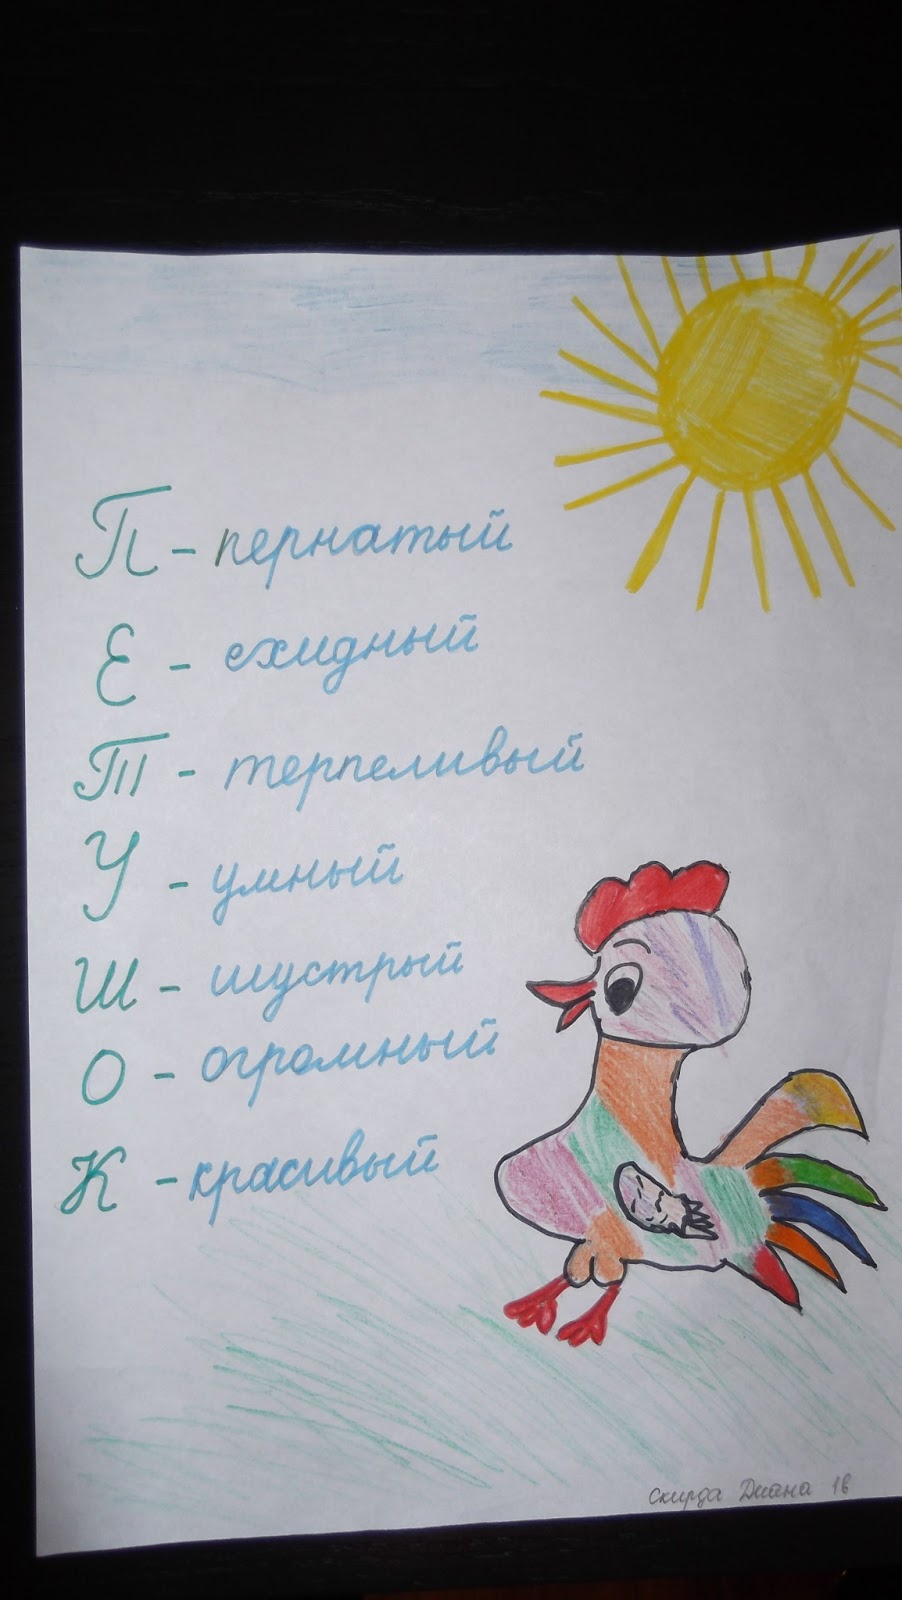 П - пернатый
Е - ехидный
Т - терпеливый
У - умный
Ш - шустрый
О - огромный
К - красивый
Скирда Диана 1в